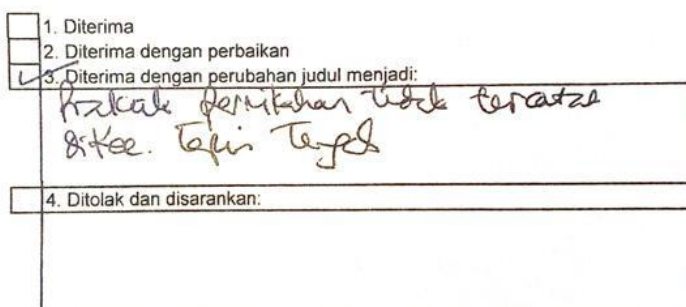 1. Diterima
2. Diterima dengan perbaikan
3. Diterima dengan perubahan judul menjadi:
pernikahan tidak tercatat
di Kec. Tapin Tengah
4. Ditolak dan disarankan: